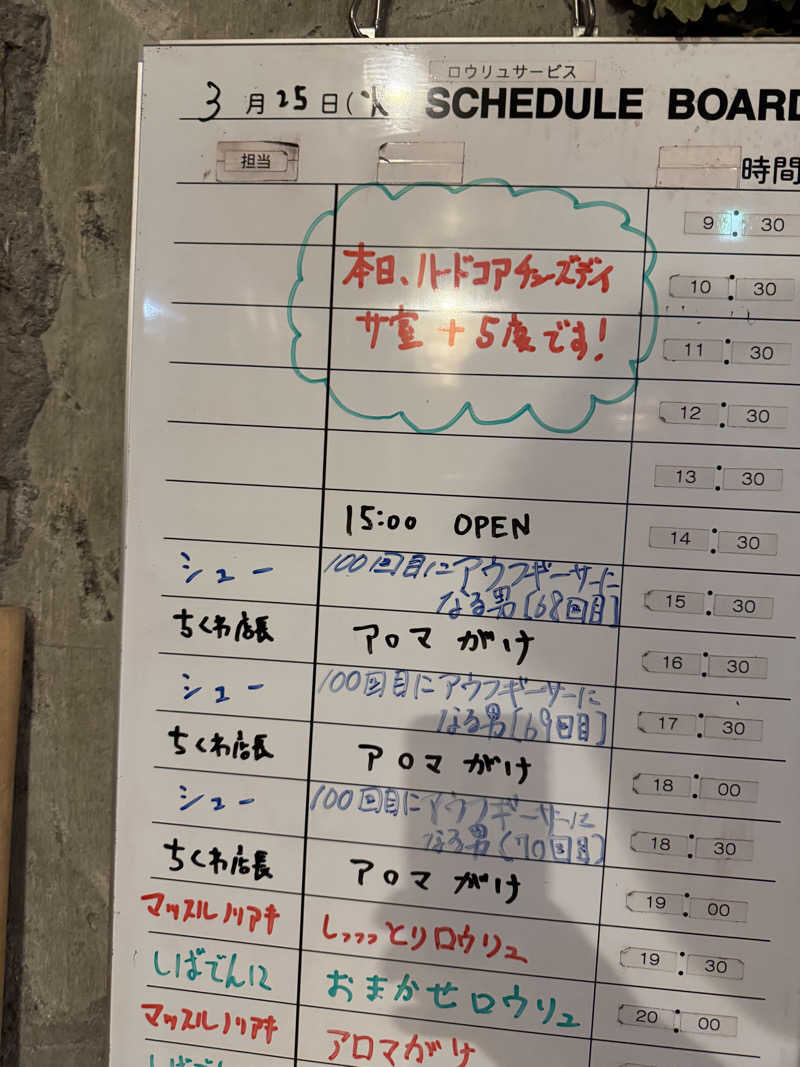 ロウリュサービス
3月25日(火 SCHEDULE BOARD
担当 時間
9:30
本日、ハードコアチューズデイ 10:30
サ室+5度です! 11:30
12:30
13:30
15:00 OPEN 14:30
シュー 100回目にアウフギーサーに
なる男[68回目] 15:30
ちくわ店長 アロマがけ 16:30
シュー 100回目にアウフギーサーに
なる男[69回目] 17:30
ちくわ店長 アロマがけ 18:00
シュー 100回目にアウフギーサーに
なる男(70回目] 18:30
ちくわ店長 アロマがけ 19:00
マッスルノリアキ しっっっとりロウリュ 19:30
しばでんに おまかせロウリュ 20:00
マッスルノリアキ アロマがけ
しばでん